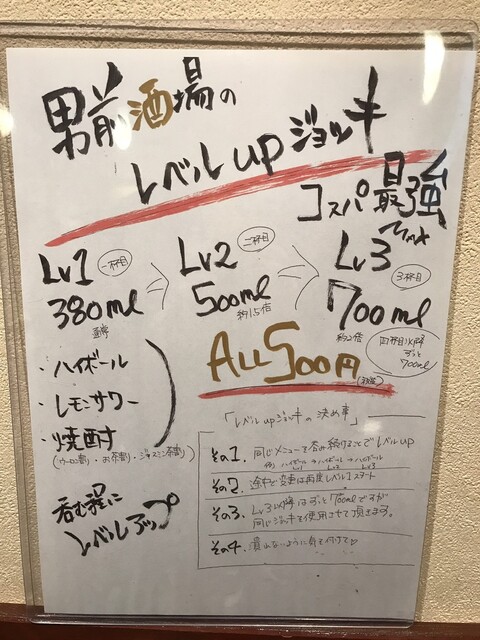 男前酒場の
レベルupジョッキ
コスパ最強
Lv1 一杯目
380ml
通常
Lv2 二杯目
500ml
約1.5倍
Lv3 MAX 3杯目
700ml
約2倍
四杯目以降
ずっと
700ml
ALL500円
・ハイボール
・レモンサワー
・焼酎
(ウーロン割り・お茶割り・ジャスミン茶割り)
呑む程に
レベルアップ
「レベルupジョッキの決め事」
その1. 同じメニューを呑み続けることでレベルup
例) ハイボール→ハイボール→ハイボール
Lv1 Lv2 Lv3
その2. 途中で変更は再度レベル1スタート
その3. Lv3以降はずっと700mlですが
同じジョッキを使用させて頂きます。
その4. 潰れないように気を付けて♡